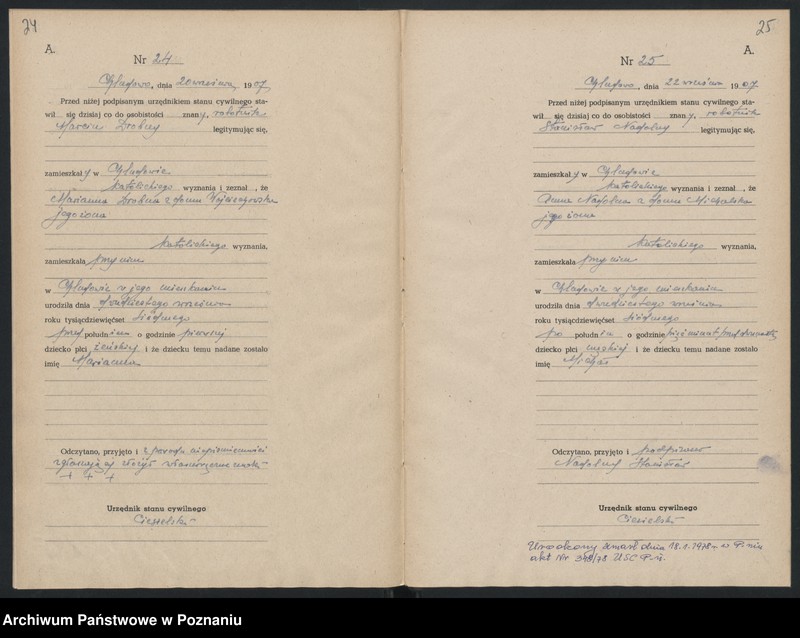 24
A.
Nr 24
, dnia 20 września 1907
Przed niżej podpisanym urzędnikiem stanu cywilnego sta-
wił się dzisiaj co do osobistości znany, robotnik
Marcin Drobny legitymując się,
zamieszkały w
katolickiego wyznania i zeznał , że
Marianna Drobna z domu
jego żona
katolickiego wyznania,
zamieszkała przy nim
w w jego mieszkaniu
urodziła dnia dwudziestego września
roku tysiącdziewięćset siódmego
przed południem o godzinie pierwszej
dziecko płci żeńskiej i że dziecku temu nadane zostało
imię Marianna
Odczytano, przyjęto i z powodu niepiśmienności
zgłaszający złożył własnoręczne znaki
+ + +
Urzędnik stanu cywilnego
Ciesielski
25
A.
Nr 25
, dnia 22 września 1907
Przed niżej podpisanym urzędnikiem stanu cywilnego sta-
wił się dzisiaj co do osobistości znany, robotnik
Stanisław Nadolny legitymując się,
zamieszkały w
katolickiego wyznania i zeznał , że
Nadolna z domu Michalska
jego żona
katolickiego wyznania,
zamieszkała przy nim
w w jego mieszkaniu
urodziła dnia dwudziestego września
roku tysiącdziewięćset siódmego
po południu o godzinie
dziecko płci męskiej i że dziecku temu nadane zostało
imię Michał
Odczytano, przyjęto i podpisano
Nadolny Stanisław
Urzędnik stanu cywilnego
Ciesielski
Urodzony zmarł dnia 18.1.1978 r. w
akt Nr /78 USC
Archiwum Państwowe w Poznaniu